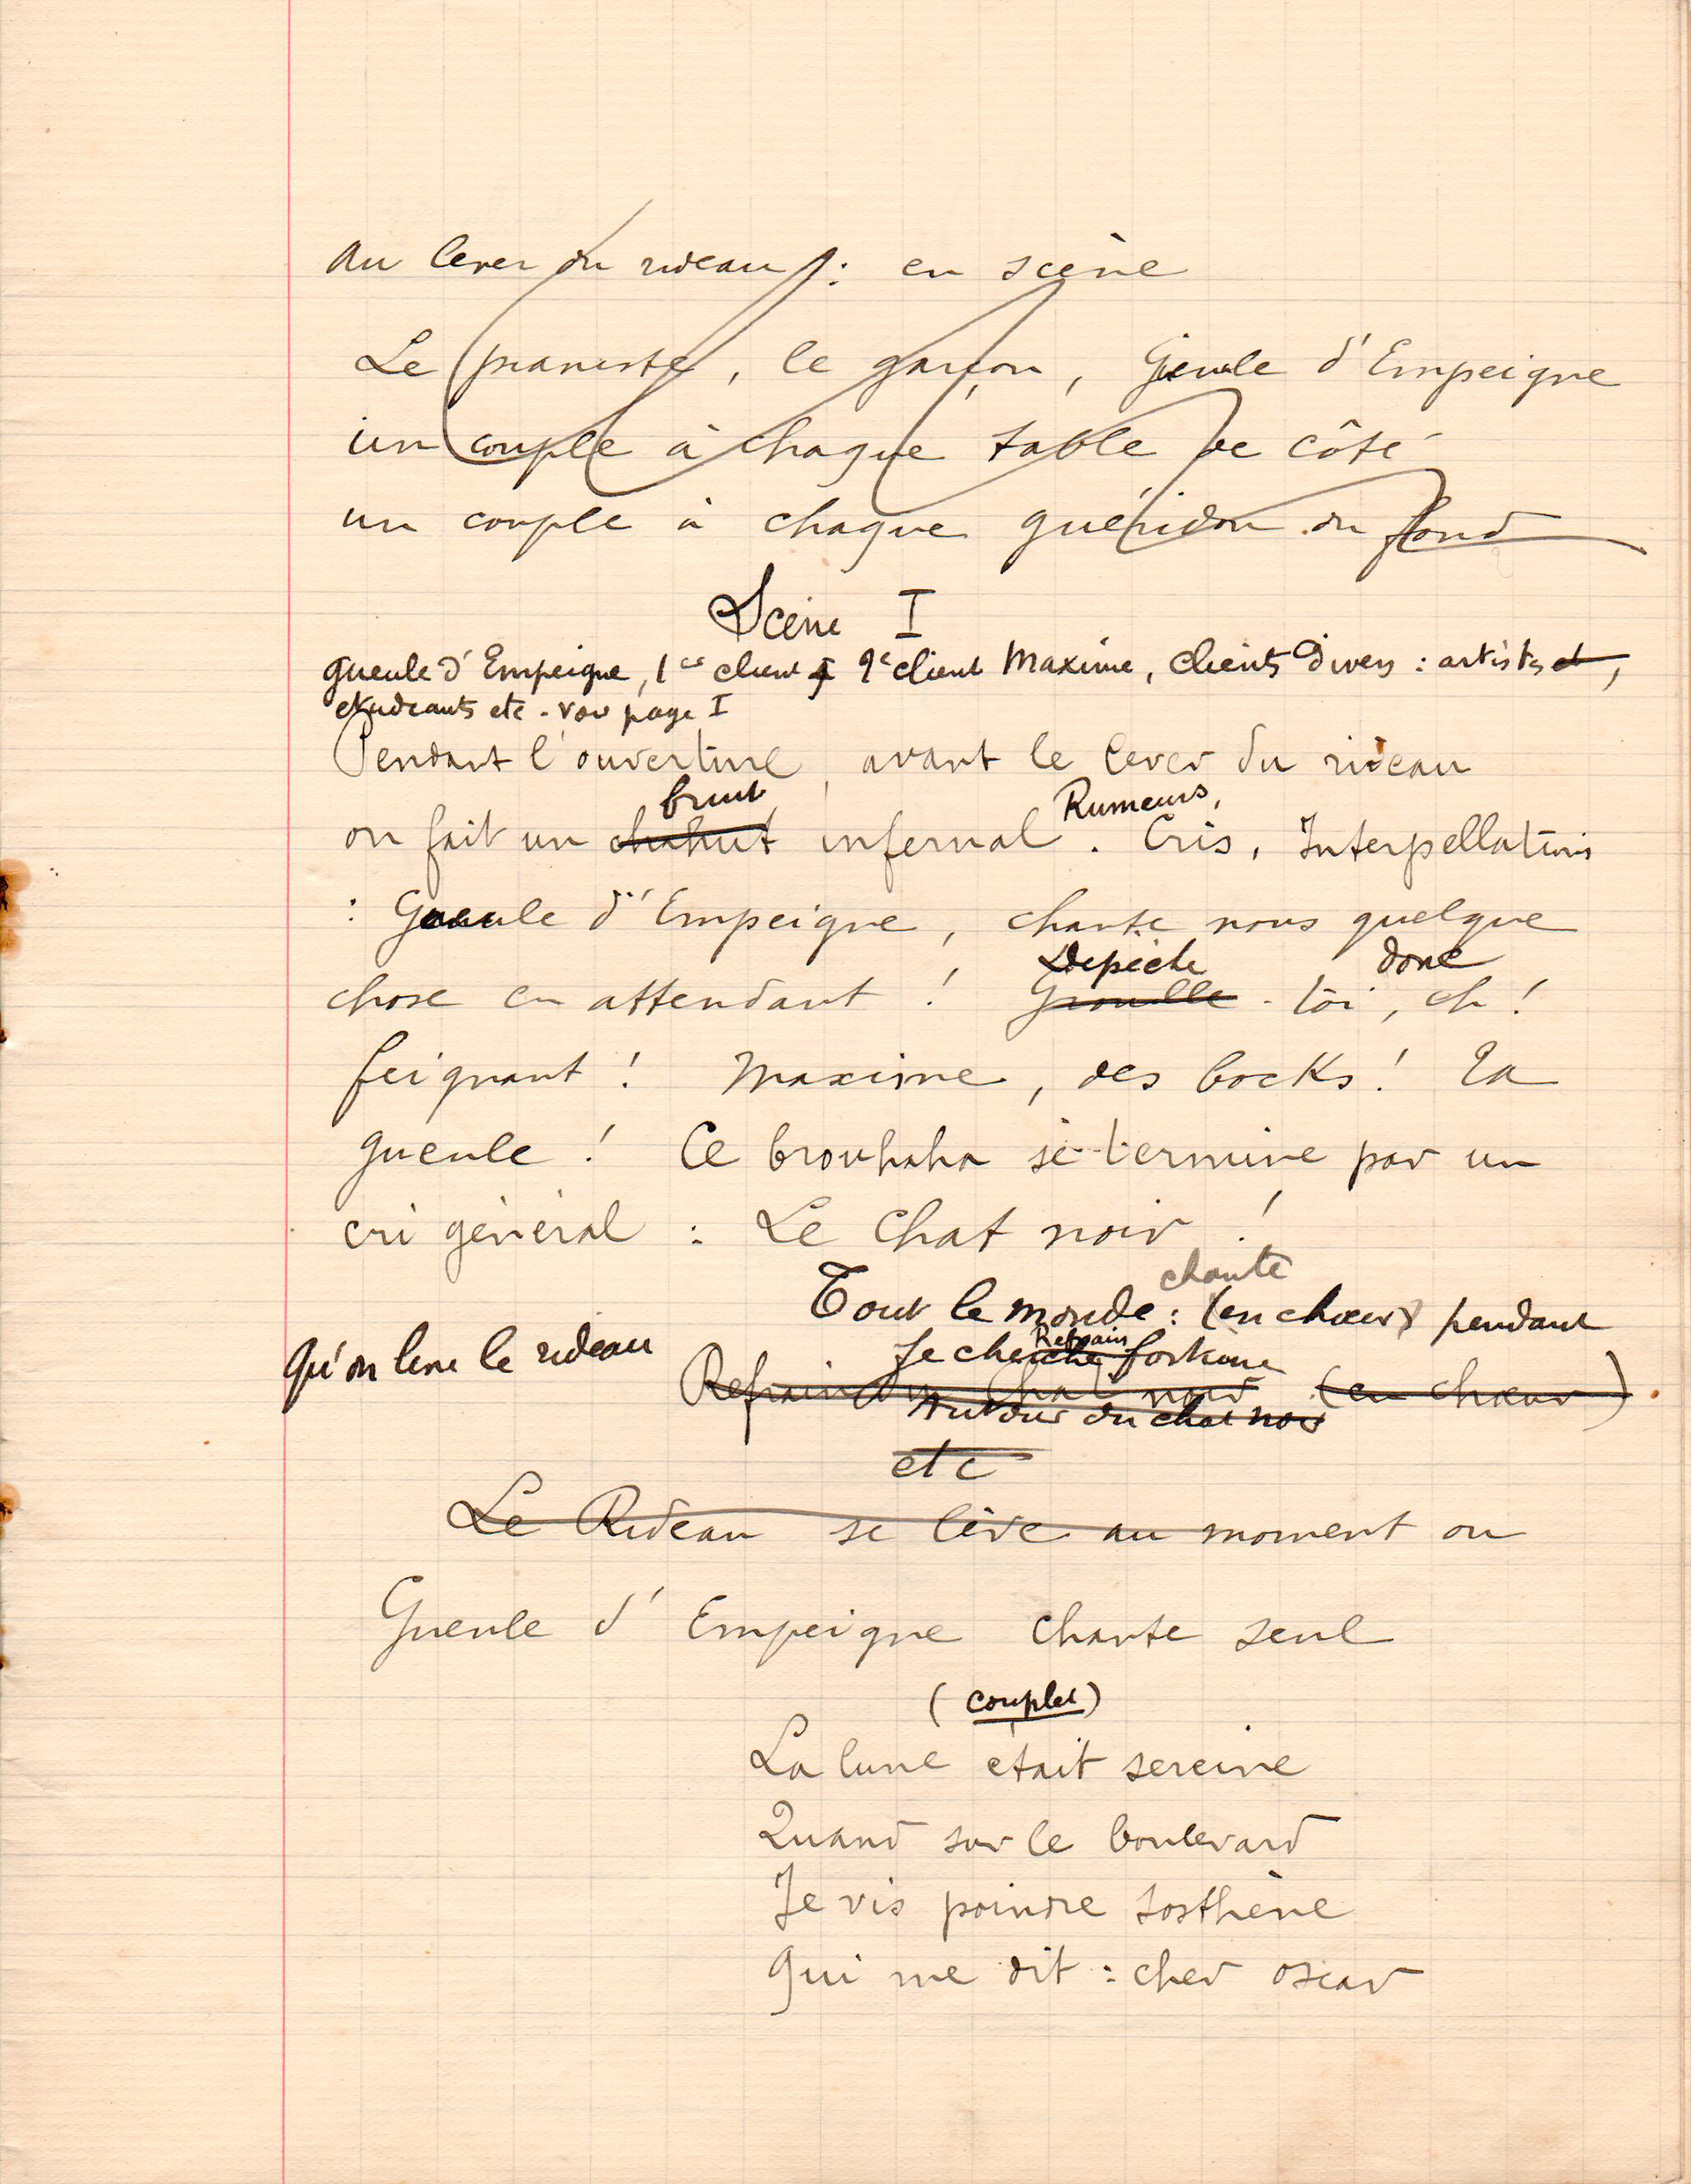 Au lever du rideau : en scène
Le pianiste, le garçon, Gueule d'Empeigne
un couple à chaque table de côté
un couple à chaque guéridon du fond
Scène I
Gueule d'Empeigne, 1er client 2e client Maxime, Clients divers : artistes et,
etudiants etc. voir page I
Pendant l'ouverture, avant le lever du rideau
bruit Rumeurs,
on fait un chahut infernal. Cris, Interpellations
: Gueule d'Empeigne, chante nous quelque
Depèche donc
chose en attendant ! Grouille-toi, eh !
feignant ! Maxime, des bocks ! Ta
gueule ! Ce brouhaha se termine par un
cri général : Le Chat noir !
chante
Tout le monde : (en chœur) pendant
qu'on lève le rideau
Refrain
Je cherche fortune
Refrain du Chat noir (en chœur)
Autour du chat noir
etc
Le Rideau se lève au moment ou
Gueule d'Empeigne chante seul
(couplet)
La lune etait sereine
Quand sur le boulevard
Je vis poindre Sosthène
Qui me dit : cher Oscar